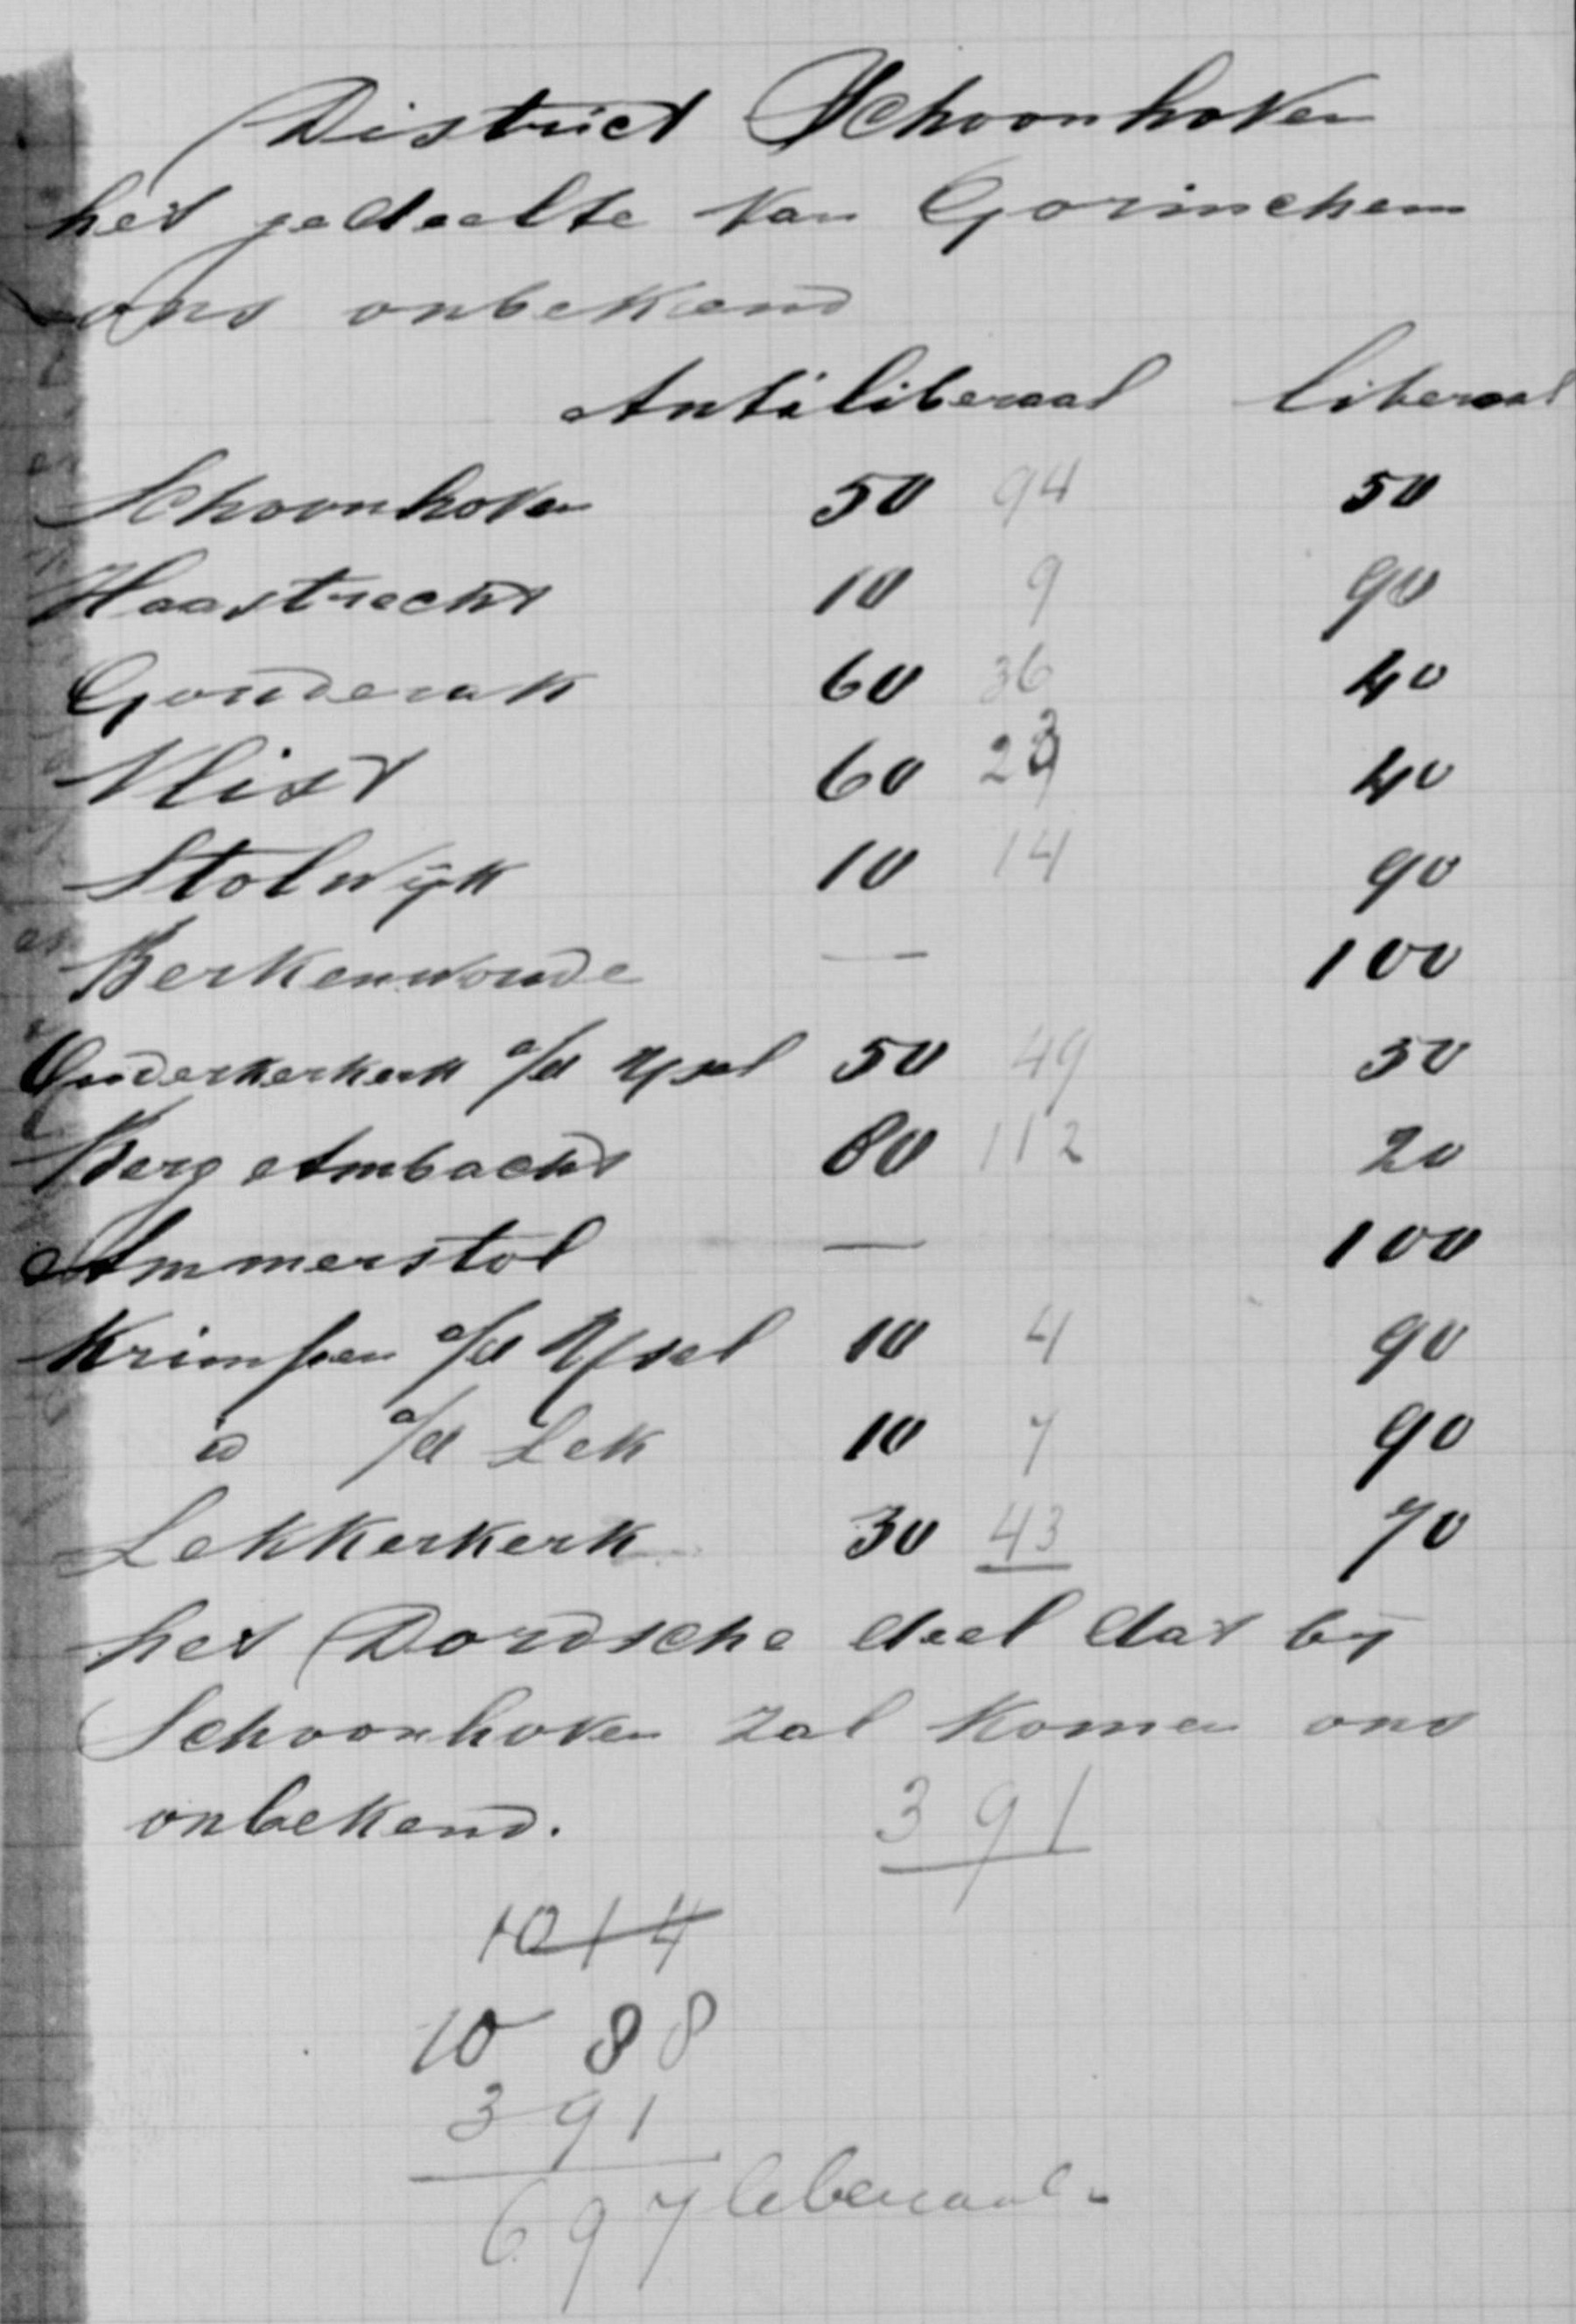 District Schoonhoven
het gedeelte van Gorinchem
ons onbekend
Antiliberaal liberaal
Schoonhoven 50 94 50
Haastrecht 10 9 90
Gouderak 60 36 40
Vlist 60 23 40
Stolwijk 10 14 90
Berkenwoude — 100
Ouderkerkerk a/d IJsel 50 49 50
Berg Ambacht 80 112 20
Ammerstol — 100
Krimpen a/d IJsel 10 4 90
id a/d Lek 10 7 90
Lekkerkerk 30 43 70
het Dordsche deel dat bij
Schoonhoven zal komen ons
onbekend. 391
1014
10 88
391
697 liberaal.